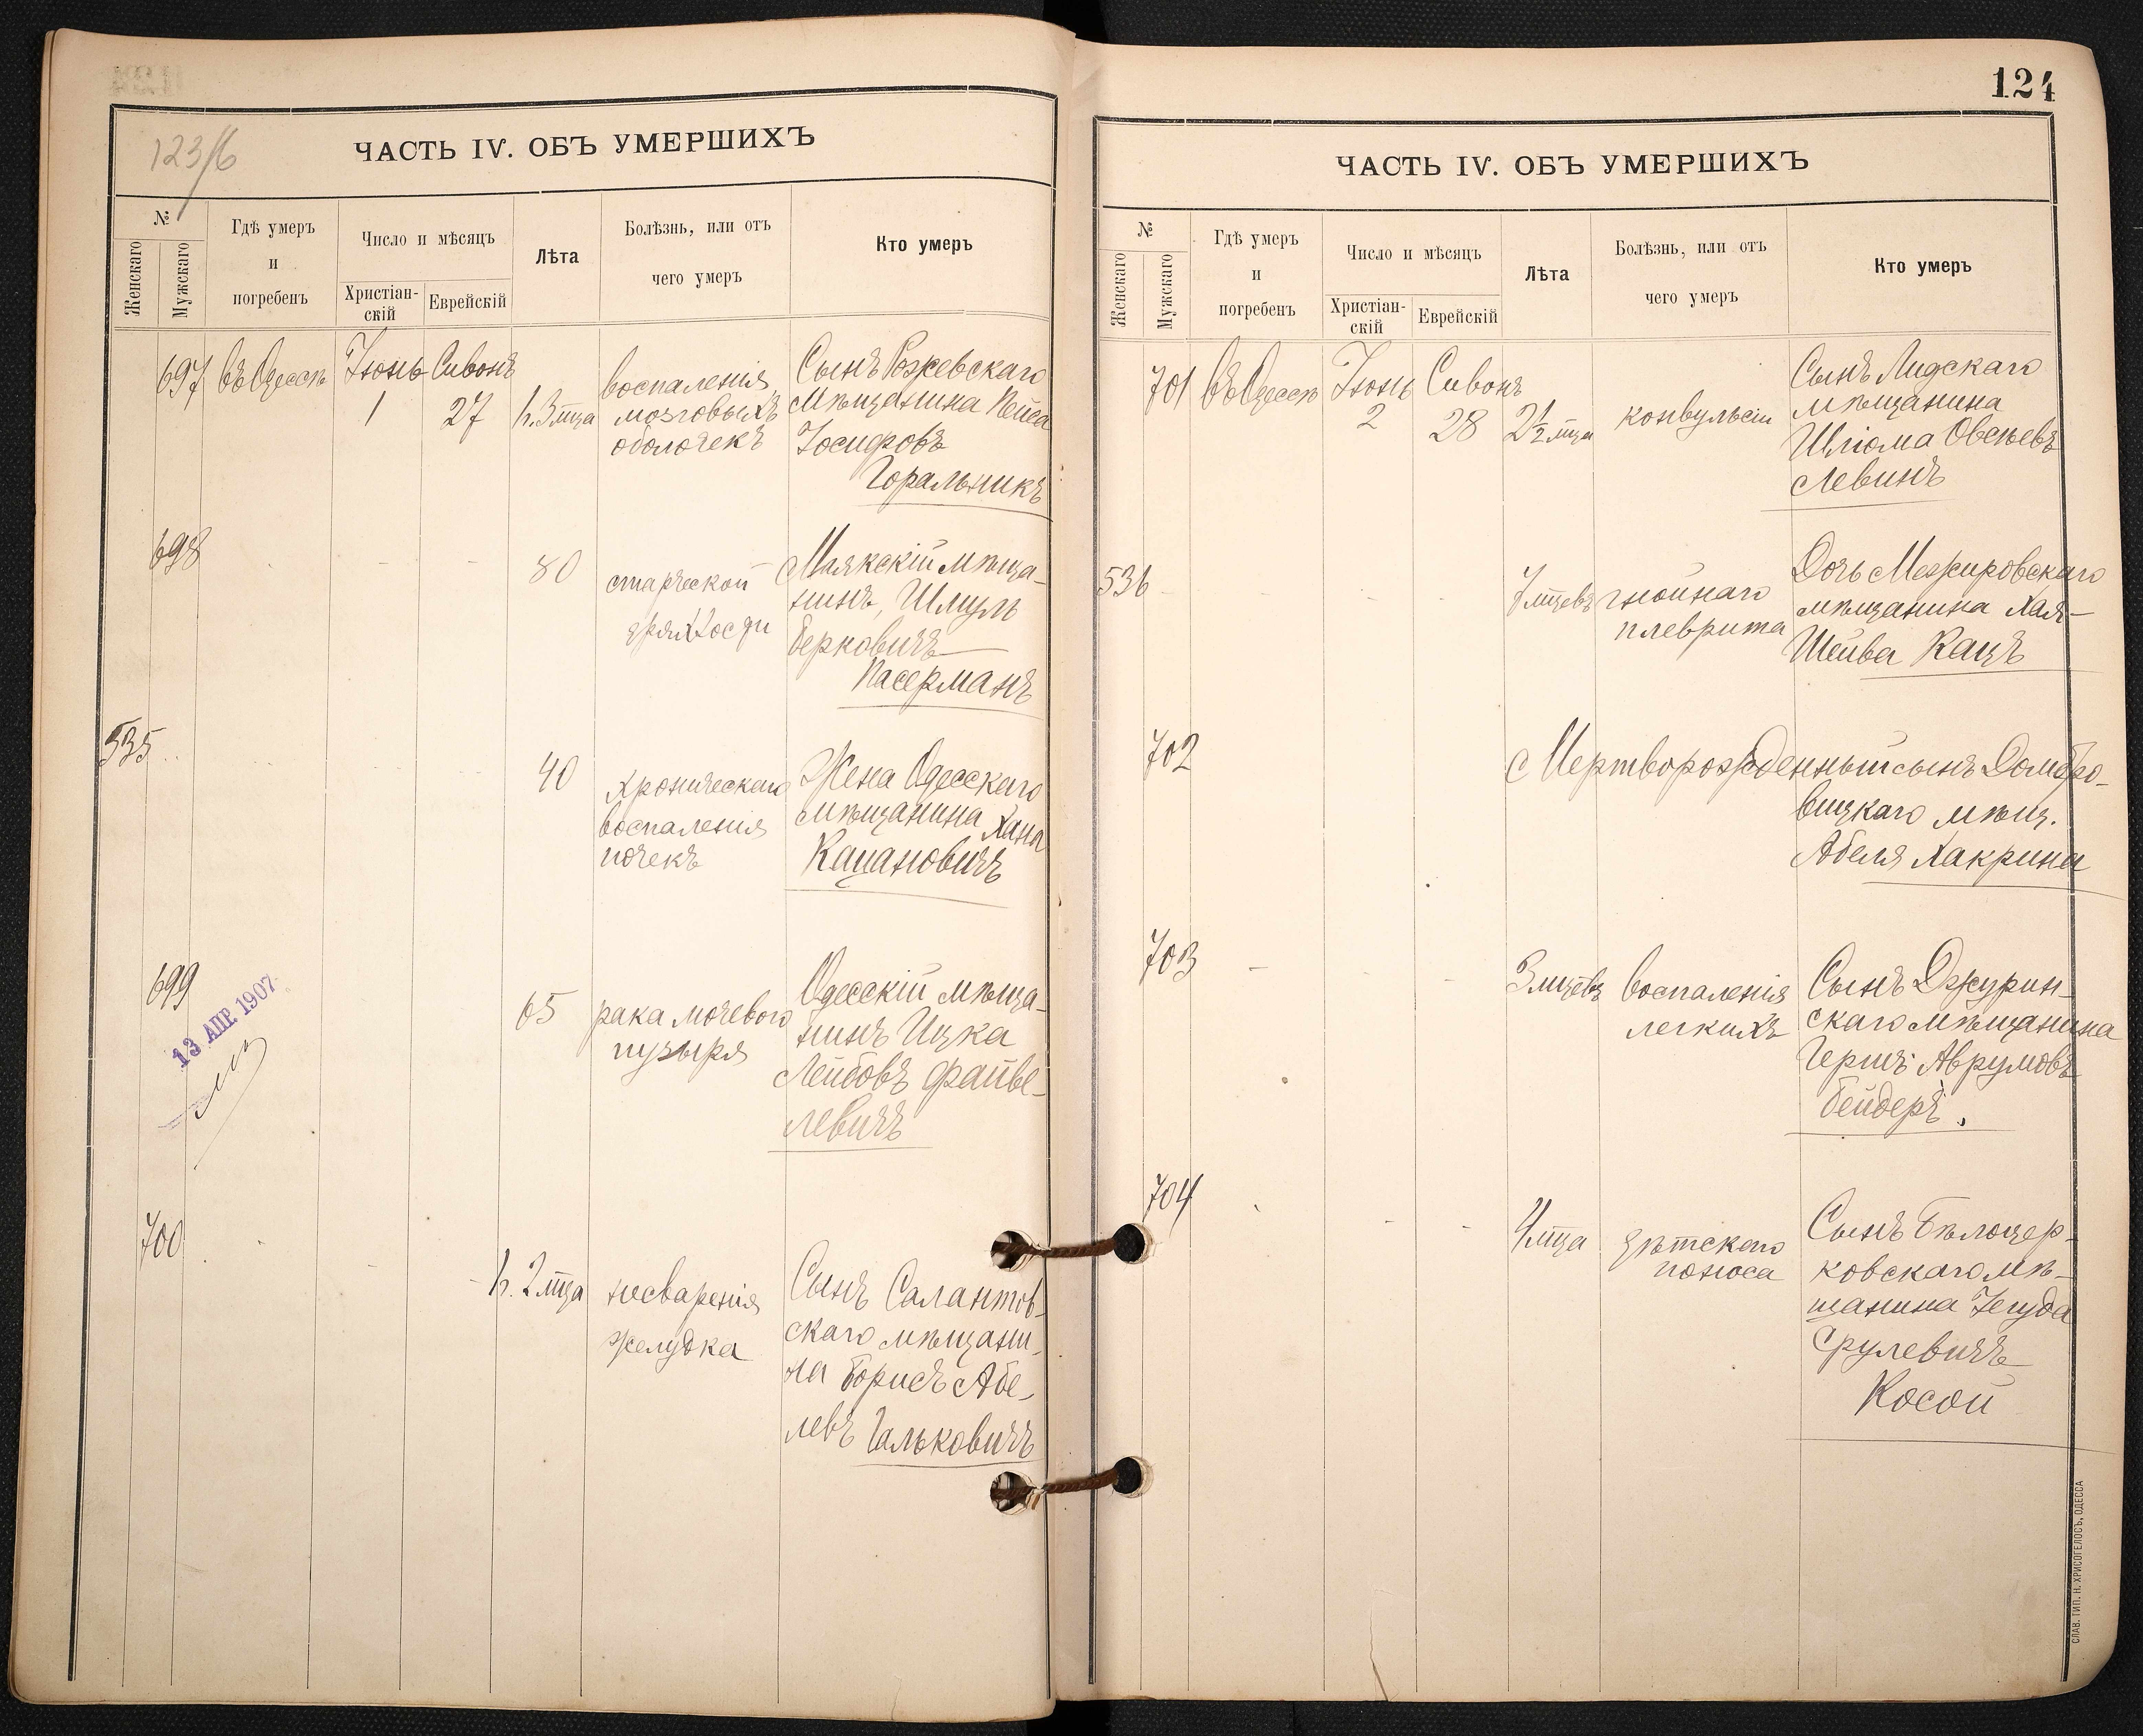 123/б
ЧАСТЬ IV. ОБЪ УМЕРШИХЪ
№
Женскаго
Мужскаго
Гдѣ умеръ
и
погребенъ
Число и мѣсяцъ
Христіан-
скій
Еврейскій
Лѣта
Болѣзнь, или отъ
чего умеръ
Кто умеръ
697 въ Одессѣ Іюнь Сивонъ
1 27 ч. 3 мца
воспаленія
мозговыхъ
оболочекъ
Сынъ Ржевскаго
мѣщанина Пейса
Іосифовъ
Горальникъ
698
80
старческой
дряхлости
Маякскій мѣща-
нинъ, Шмуль
Берковичъ
Пасерманъ
535
40
хроническаго
воспаленія
почекъ
Жена Одесскаго
мѣщанина Хана
Кацановичъ
699
13 АПР. 1907
65
рака мочевого
пузыря
Одесскій мѣща-
нинъ Ицка
Лейбовъ Файве-
левичъ
700
ч. 2 мца
несваренія
желудка
Сынъ Салантов-
скаго мѣщани-
на Борисъ Абе-
левъ Гальковичъ
124
ЧАСТЬ IV. ОБЪ УМЕРШИХЪ
№
Женскаго
Мужскаго
Гдѣ умеръ
и
погребенъ
Число и мѣсяцъ
Христіан-
скій
Еврейскій
Лѣта
Болѣзнь, или отъ
чего умеръ
Кто умеръ
701 въ Одессѣ Іюнь Сивонъ
2 28 2½ мца
конвульсіи
Сынъ Лидскаго
мѣщанина
Шліома Овсѣевъ
Левинъ
536
7 мцевъ
гнойнаго
плеврита
Дочь Межировскаго
мѣщанина Хая-
Шейва Кацъ
702
Мертворожденный сынъ Домбро-
вицкаго мѣщ.
Абеля Хакрина
703
3 мцевъ
воспаленія
легкихъ
Сынъ Джурин-
скаго мѣщанина
Гершъ Аврумовъ
Бейдеръ.
704
4 мца
дѣтскаго
поноса
Сынъ Бѣлоцер-
ковскаго мѣ-
щанина Іегуда
Срулевичъ
Косой
СЛАВ. ТИП. Н. ХРИСОГЕЛОСЪ, ОДЕССА